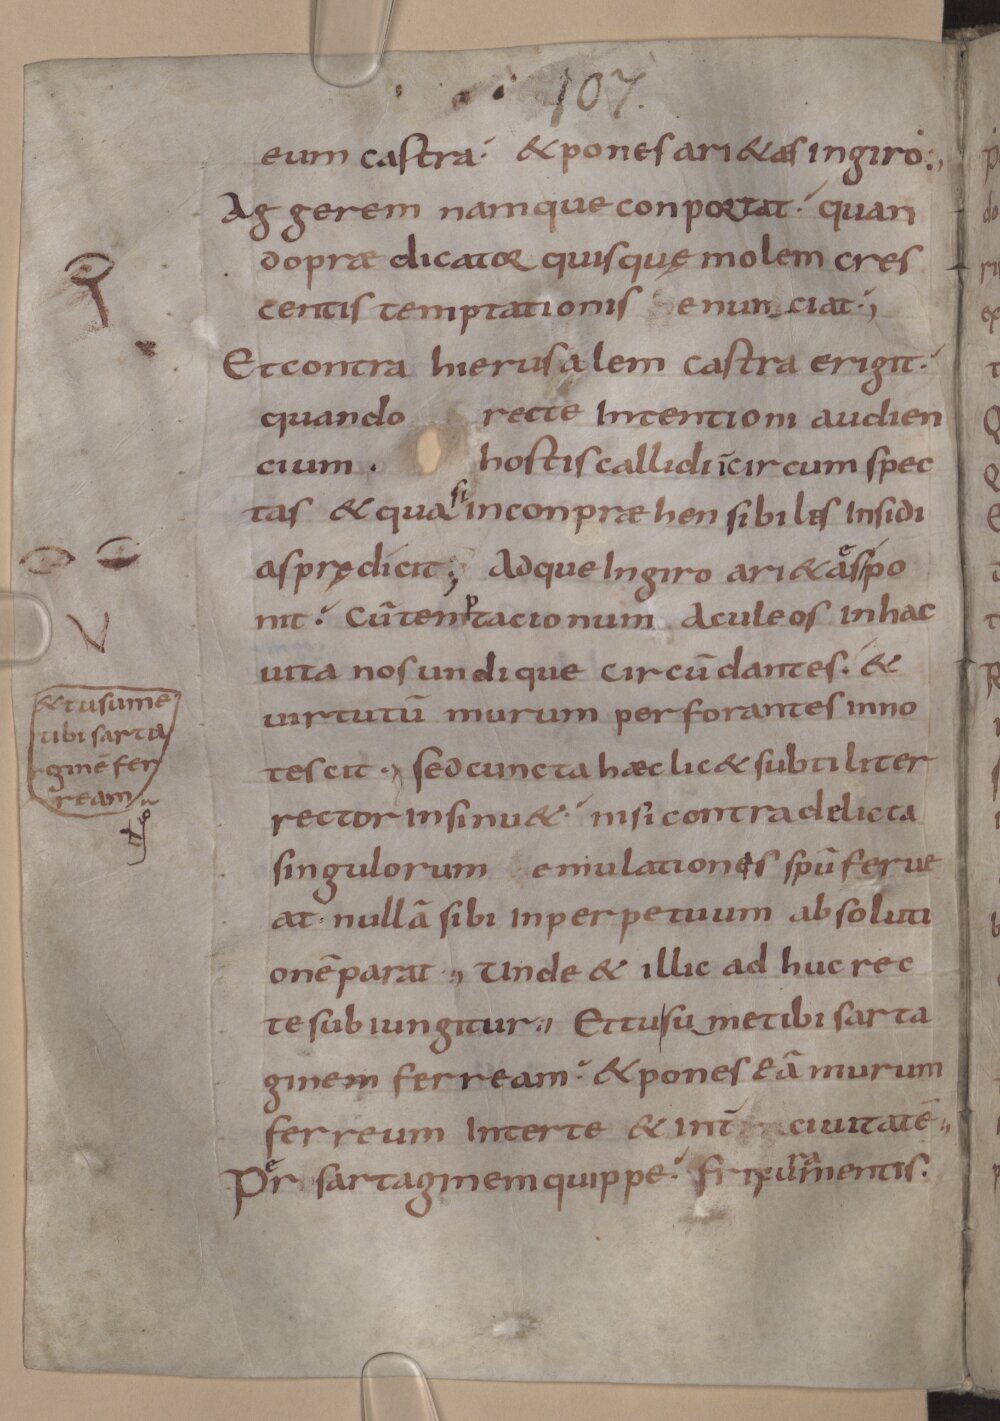 107.
eum castra · & pones ari&es in giro ·,
Aggerem namque conportat · quan
do prædicator quisque molem cres
centis temptationis enunciat ·,
Et contra hierusalem castra erigit ·
quando recte intentioni audien
cium · hostis callidi īcircumspec
tas & quasi inconpræhensibiles insidi
as prędicit ; Adque in giro ari&es po
nit · Cū temptacionum aculeos in hac
uita nos undique circūdantes · &
uirtutū murum perforantes inno
tescit ·, Sed cuncta hæc lic& subtiliter
rector insinu& · nisi contra delicta
singulorum emulationis spū ferue
at · nullā sibi in perpetuum absoluti
onē parat ·, Unde & illic ad huc rec
te subiungitur ·, Et tu sume tibi sarta
ginem ferream · & pones eā murum
ferreum inter te & int̄ ciuitatē ·,
Per sartaginem quippe · frixura mentis ·
& tu sume
tibi sarta
ginē fer
ream